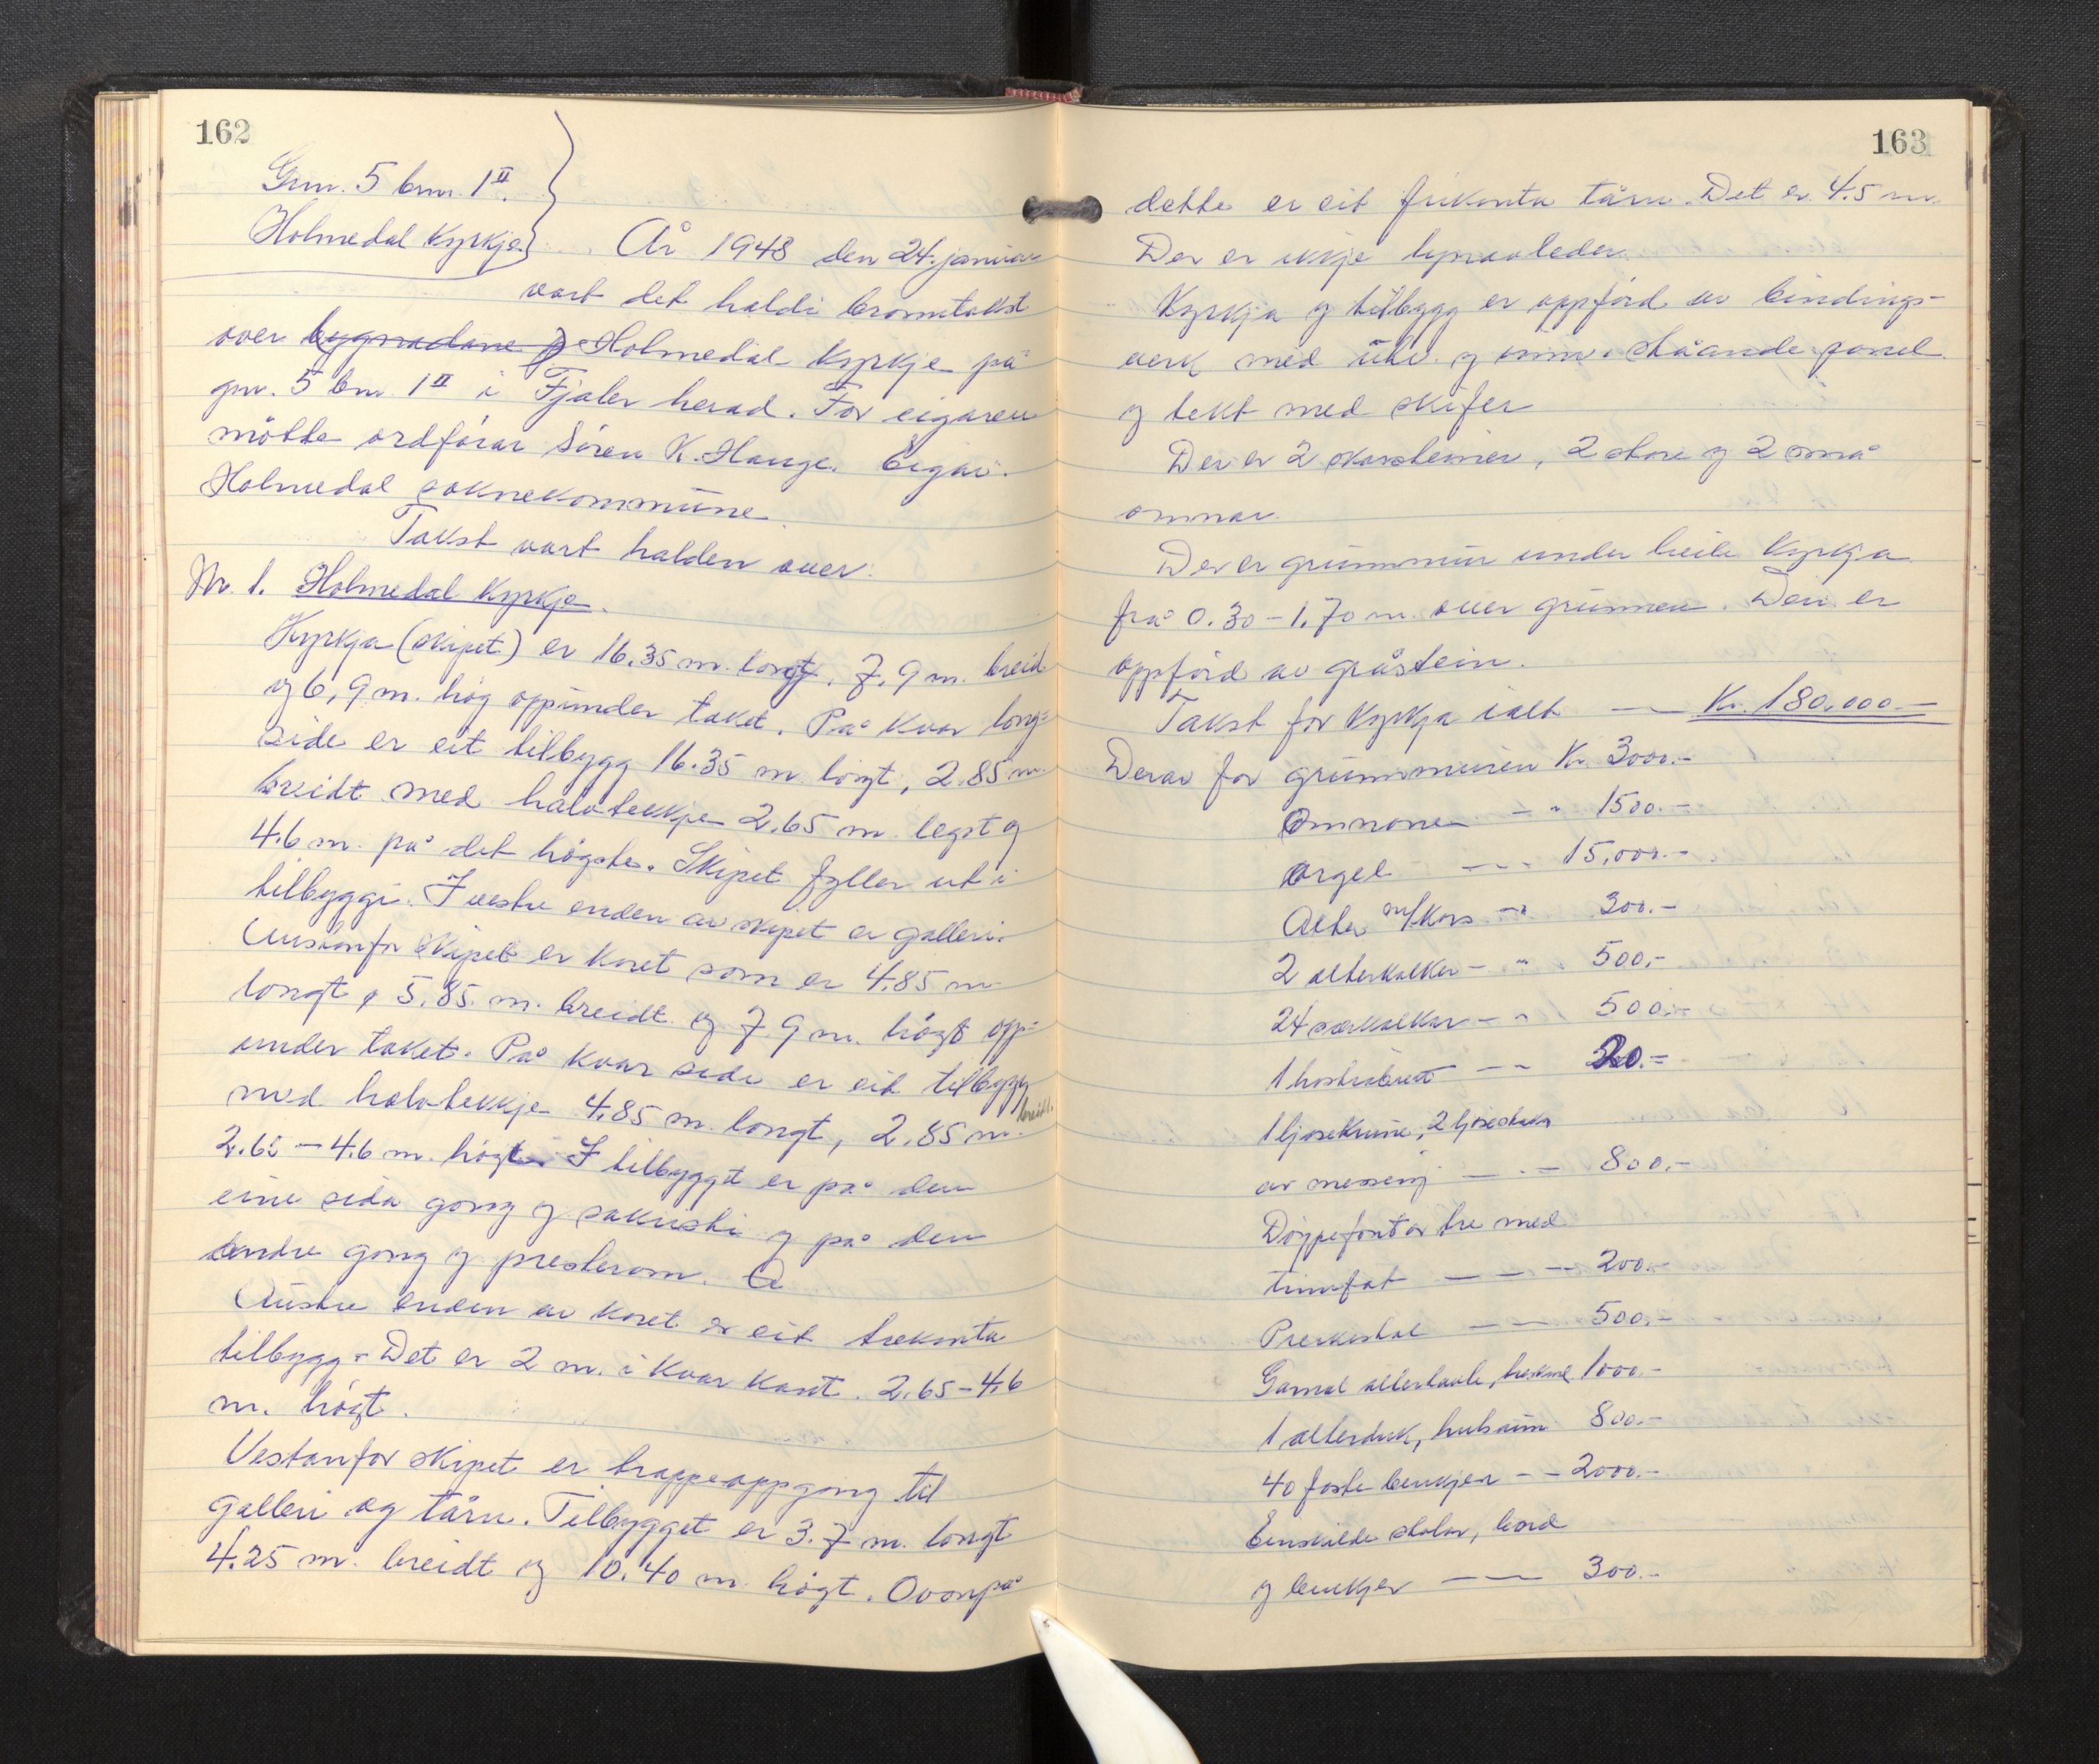 162
Gnr. 5 bnr. 1 II.
Holmedal Kyrkje
År 1948 den 24. januar
vart det haldi branntakst
over bygnadane og Holmedal Kyrkje på
gnr. 5 bnr. 1 II i Fjaler herad. For eigaren
møtte ordførar Søren K. Hauge. Eigar:
Holmedal soknekommune.
Takst vart halden over:
Nr. 1. Holmedal Kyrkje.
Kyrkja (skipet) er 16.35 m. langt, 7,9 m. breid
og 6,9 m. høg oppunder taket. På kvar lang-
side er eit tilbygg 16.35 m. langt, 2.85 m.
breidt med halvtekkje 2.65 m. legst og
4.6 m. på det høgste. Skipet fyller ut i
tilbyggi. I vestre enden av skipet er galleri.
Austanfor skipet er koret som er 4.85 m.
langt, 5.85 m. breidt og 7.9 m. høgt opp-
under taket. På kvar side er eit tilbygg
med halvtekkje 4.85 m. langt, 2.85 m. breidt.
2.65 – 4.6 m. høgt. I tilbygget er på den
eine sida gang og sakristi og på den
andre gang og presterom.
Austre enden av koret er eit trekanta
tilbygg. Det er 2 m. i kvar kant. 2.65 – 4.6
m. høgt.
Vestanfor skipet er trappeoppgang til
galleri og tårn. Tilbygget er 3.7 m. langt
4.25 m. breidt og 10.40 m. høgt. Ovanpå
163
dette er eit firkanta tårn. Det er 4.5 m.
Der er ikkje lynavleder.
Kyrkja og tilbygg er oppførd av bindings-
verk med utv. og innv. ståande panel
og tekt med skifer
Der er 2 skorsteiner, 2 store og 2 små
omnar.
Der er grunnmur under heile Kyrkja
frå 0.30 – 1.70 m. over grunnen. Den er
oppførd av gråstein.
Takst for Kyrkja ialt — Kr. 180.000.—
Derav for grunnmuren Kr. 3000.-
Omnane - " 1500.-
Orgel — - 15,000.-
Alter m/kors - " 300.-
2 alterkalker - " 500.-
24 særkalkar - " 500.-
1 hostiebrett - - 20.-
1 ljosekrune, 2 ljosestakar
av messing — - 800.-
Døypefont av tre med
tinnfat — — 200.-
Preikestol — — 500.-
Gamal altertavle, 1000.-
1 alterduk, 800.-
40 faste benkjer - - 2000.-
Einskilde stolar, bord
og benkjer — — 300.-